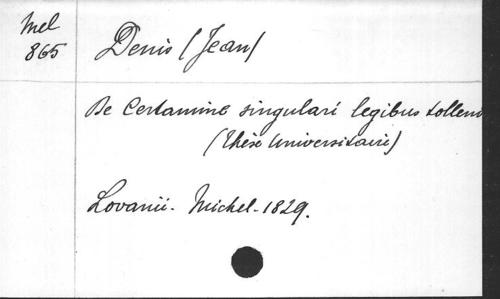 Mel
865
Denis (Jean)
De Certamine singulari legibus tollen
(Thèse Universitaire)
Lovanii - Michel - 1829.